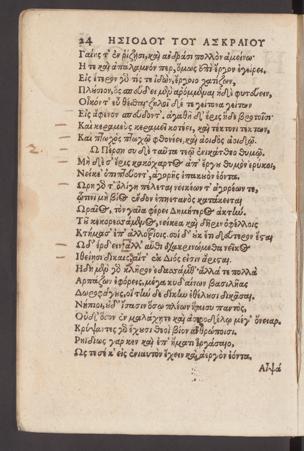 24 ΗΣΙΟΔΟΥ ΤΟΥ ΑΣΚΡΑΙΟΥ
Γαίης τ' ἐν ῥίζῃσι, καὶ ἀνδράσι πολλὸν ἀμείνω·
Ἥ τε καὶ ἀπάλαμνόν περ, ὅμως ἐπὶ ἔργον ἐγείρει.
Εἰς ἕτερον γάρ τίς τε ἰδὼν, ἔργοιο χατίζων,
Πλούσιον, ὃς σπεύδει μὲν ἀρόμμεναι ἠδὲ φυτεύειν,
Οἶκόν τ' εὖ θέσθαι· ζηλοῖ δέ τε γείτονα γείτων
Εἰς ἄφενον σπεύδοντ'. ἀγαθὴ δ' ἔρις ἥδε βροτοῖσι·
Καὶ κεραμεὺς κεραμεῖ κοτέει, καὶ τέκτονι τέκτων,
Καὶ πτωχὸς πτωχῷ φθονέει, καὶ ἀοιδὸς ἀοιδῷ.
Ὦ Πέρση σὺ δὲ ταῦτα τεῷ ἐνικάτθεο θυμῷ.
Μὴ δέ σ' ἔρις κακόχαρτος ἀπ' ἔργου θυμὸν ἐρύκοι,
Νείκε' ὀπιπτεύοντ', ἀγορῆς ἐπακουὸν ἐόντα.
Ὥρη γάρ τ' ὀλίγη πέλεται νεικέων τ' ἀγορέων τε,
ᾧτινι μὴ βίος ἔνδον ἐπηετανὸς κατάκειται
Ὡραῖος, τὸν γαῖα φέρει Δημήτερος ἀκτήν.
Τοῦ κε κορεσσάμενος, νείκεα καὶ δῆριν ὀφέλλοις
Κτήμασ' ἐπ' ἀλλοτρίοις. σοὶ δ' οὐκ ἔτι δεύτερον ἔσται
Ὧδ' ἔρδειν· ἀλλ' αὖθι διακρινώμεθα νεῖκος
Ἰθείῃσι δίκαις, αἵτ' ἐκ Διός εἰσιν ἄρισται.
Ἤδη μὲν γὰρ κλῆρον ἐδασσάμεθ'· ἄλλά τε πολλὰ
Ἁρπάζων ἐφόρεις, μέγα κυδαίνων βασιλῆας
Δωροφάγους, οἳ τήνδε δίκην ἐθέλουσι δικάσαι.
Νήπιοι, οὐδ' ἴσασιν ὅσῳ πλέον ἥμισυ παντὸς,
Οὐδ' ὅσον ἐν μαλάχῃ τε καὶ ἀσφοδέλῳ μέγ' ὄνειαρ.
Κρύψαντες γὰρ ἔχουσι θεοὶ βίον ἀνθρώποισι.
Ῥηϊδίως γάρ κεν καὶ ἐπ' ἤματι ἐργάσσαιο,
Ὥς τέ σέ κ' εἰς ἐνιαυτὸν ἔχειν καὶ ἀεργὸν ἐόντα.
Αἶψά